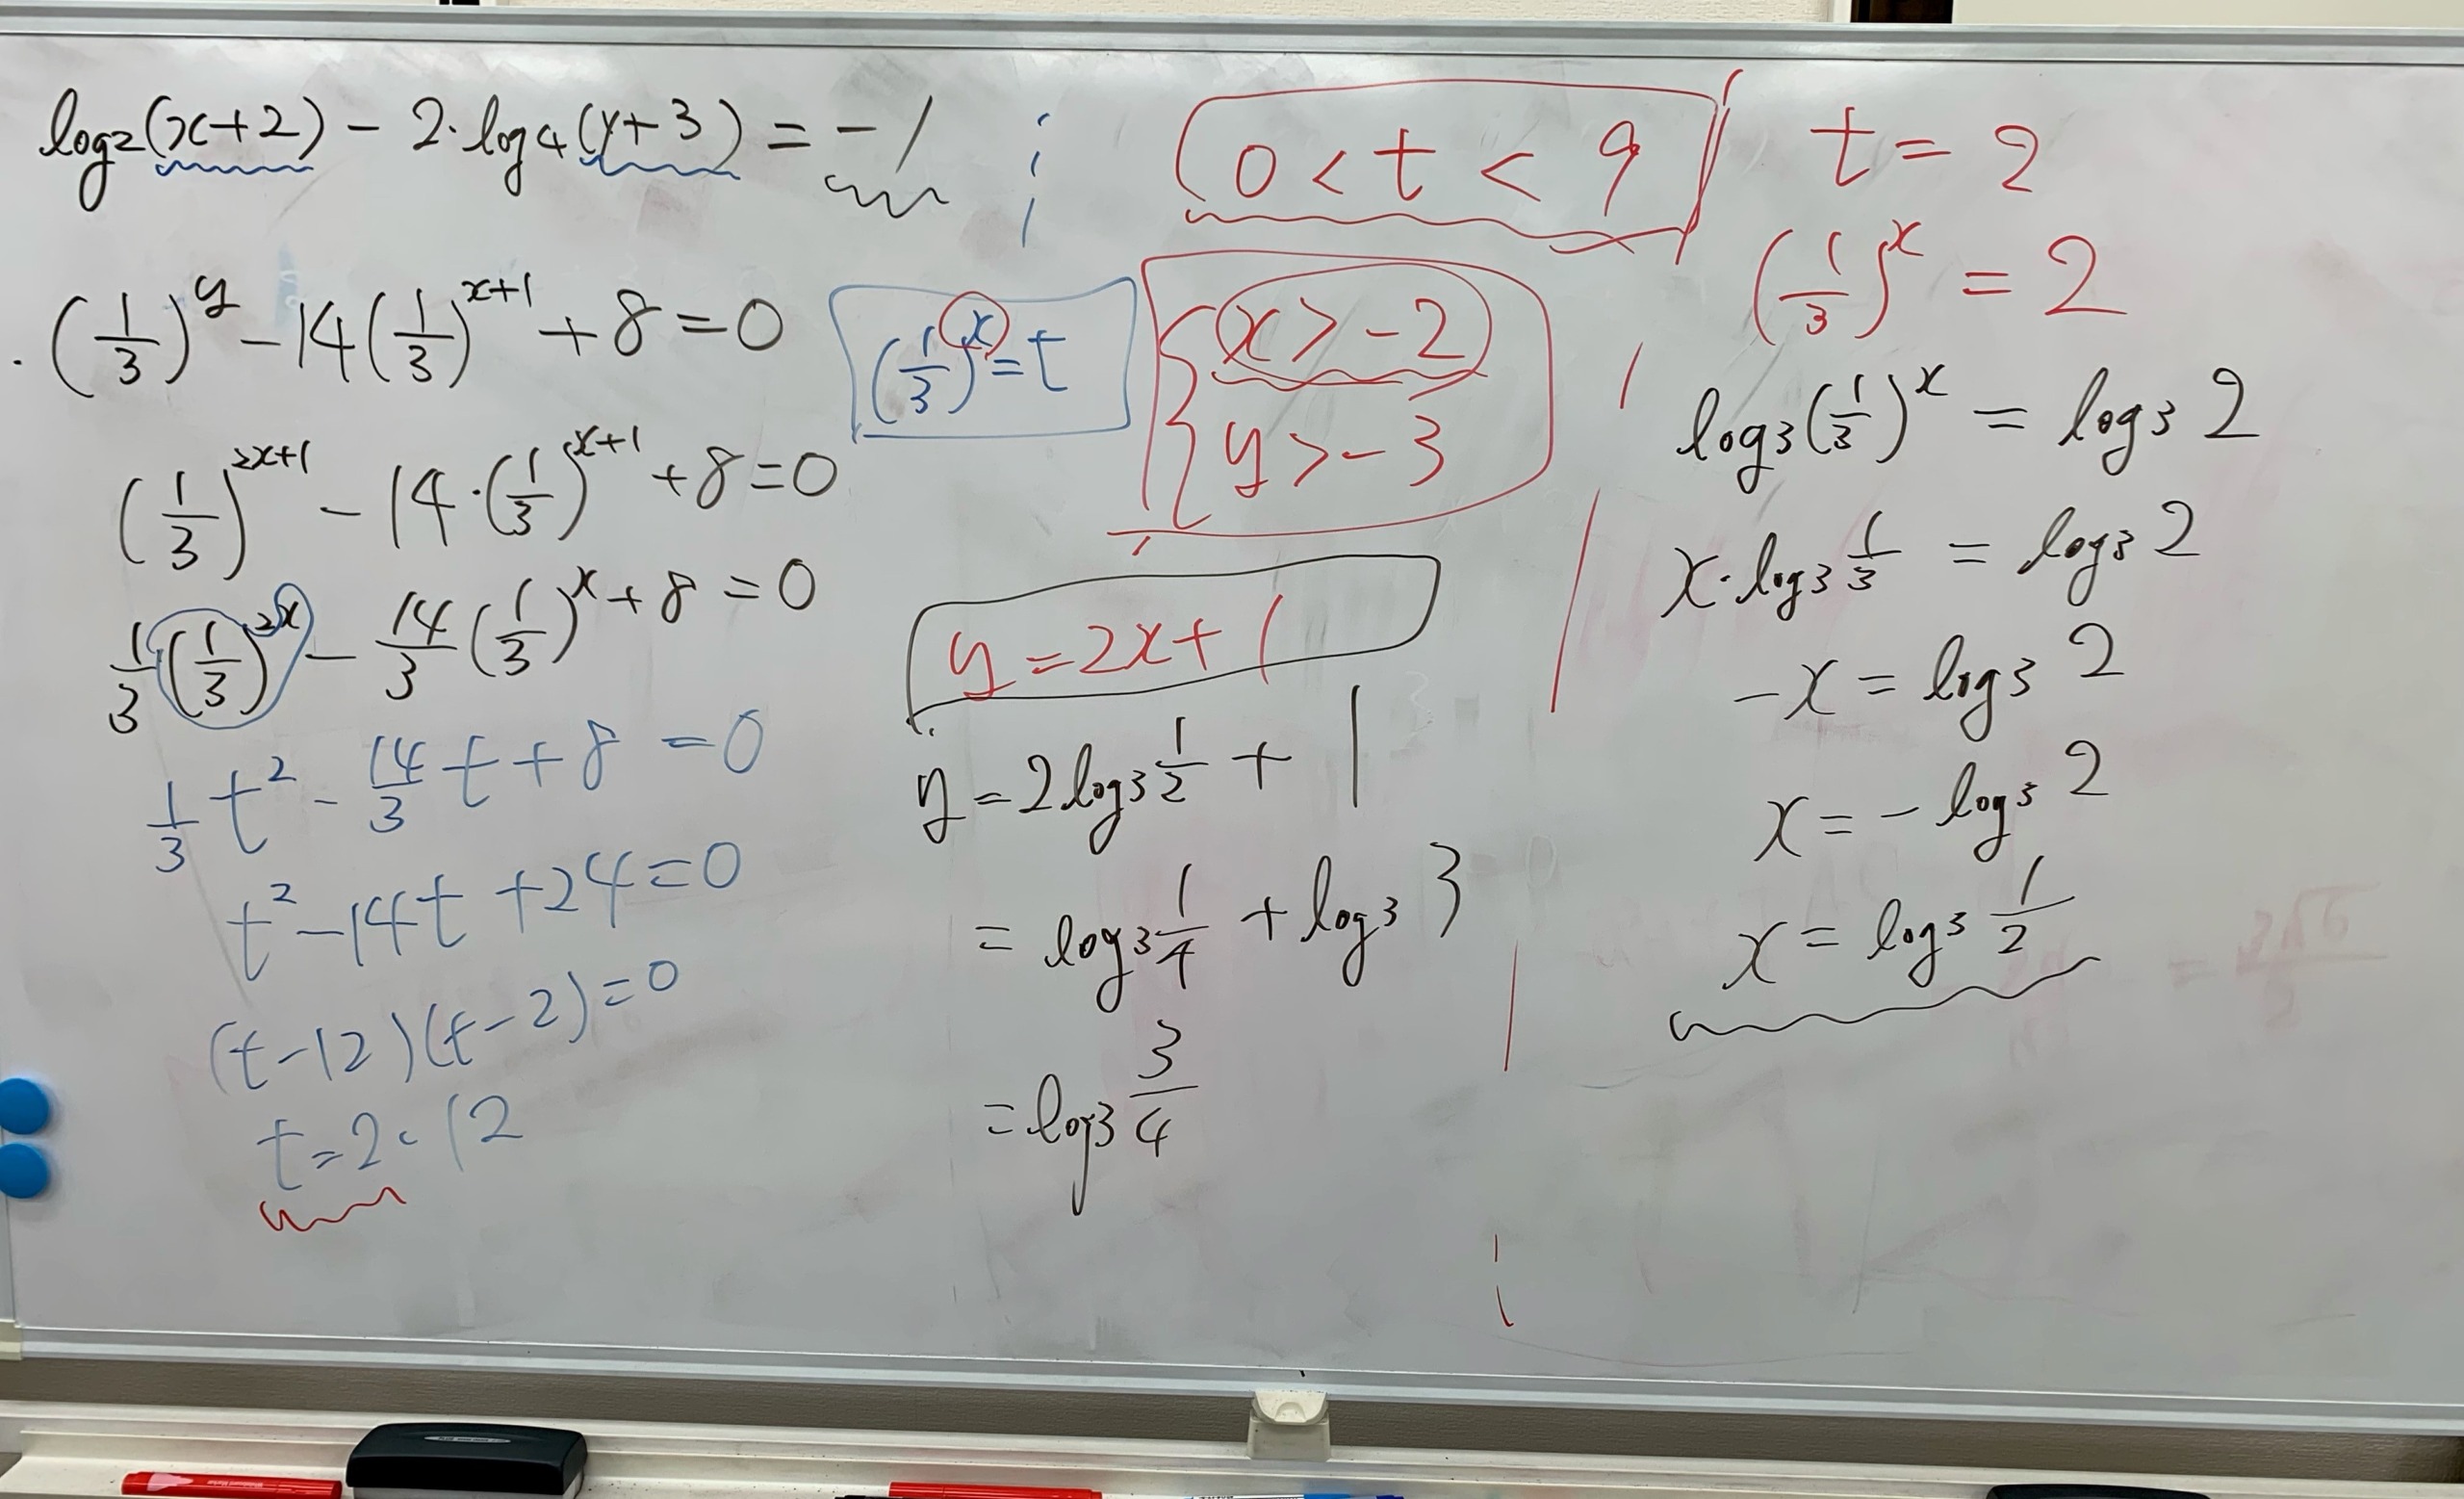 log₂(x+2) - 2·log₄(y+3) = -1
(1/3)^y - 14(1/3)^(x+1) + 8 = 0
(1/3)^(2x+1) - 14·(1/3)^(x+1) + 8 = 0
1/3 (1/3)^(2x) - 14/3 (1/3)^x + 8 = 0
1/3 t² - 14/3 t + 8 = 0
t² - 14t + 24 = 0
(t-12)(t-2) = 0
t = 2, 12
(1/3)^x = t
0 < t < 9
x > -2
y > -3
y = 2x + 1
y = 2log₃ 1/2 + 1
= log₃ 1/4 + log₃ 3
= log₃ 3/4
t = 2
(1/3)^x = 2
log₃ (1/3)^x = log₃ 2
x·log₃ 1/3 = log₃ 2
-x = log₃ 2
x = -log₃ 2
x = log₃ 1/2